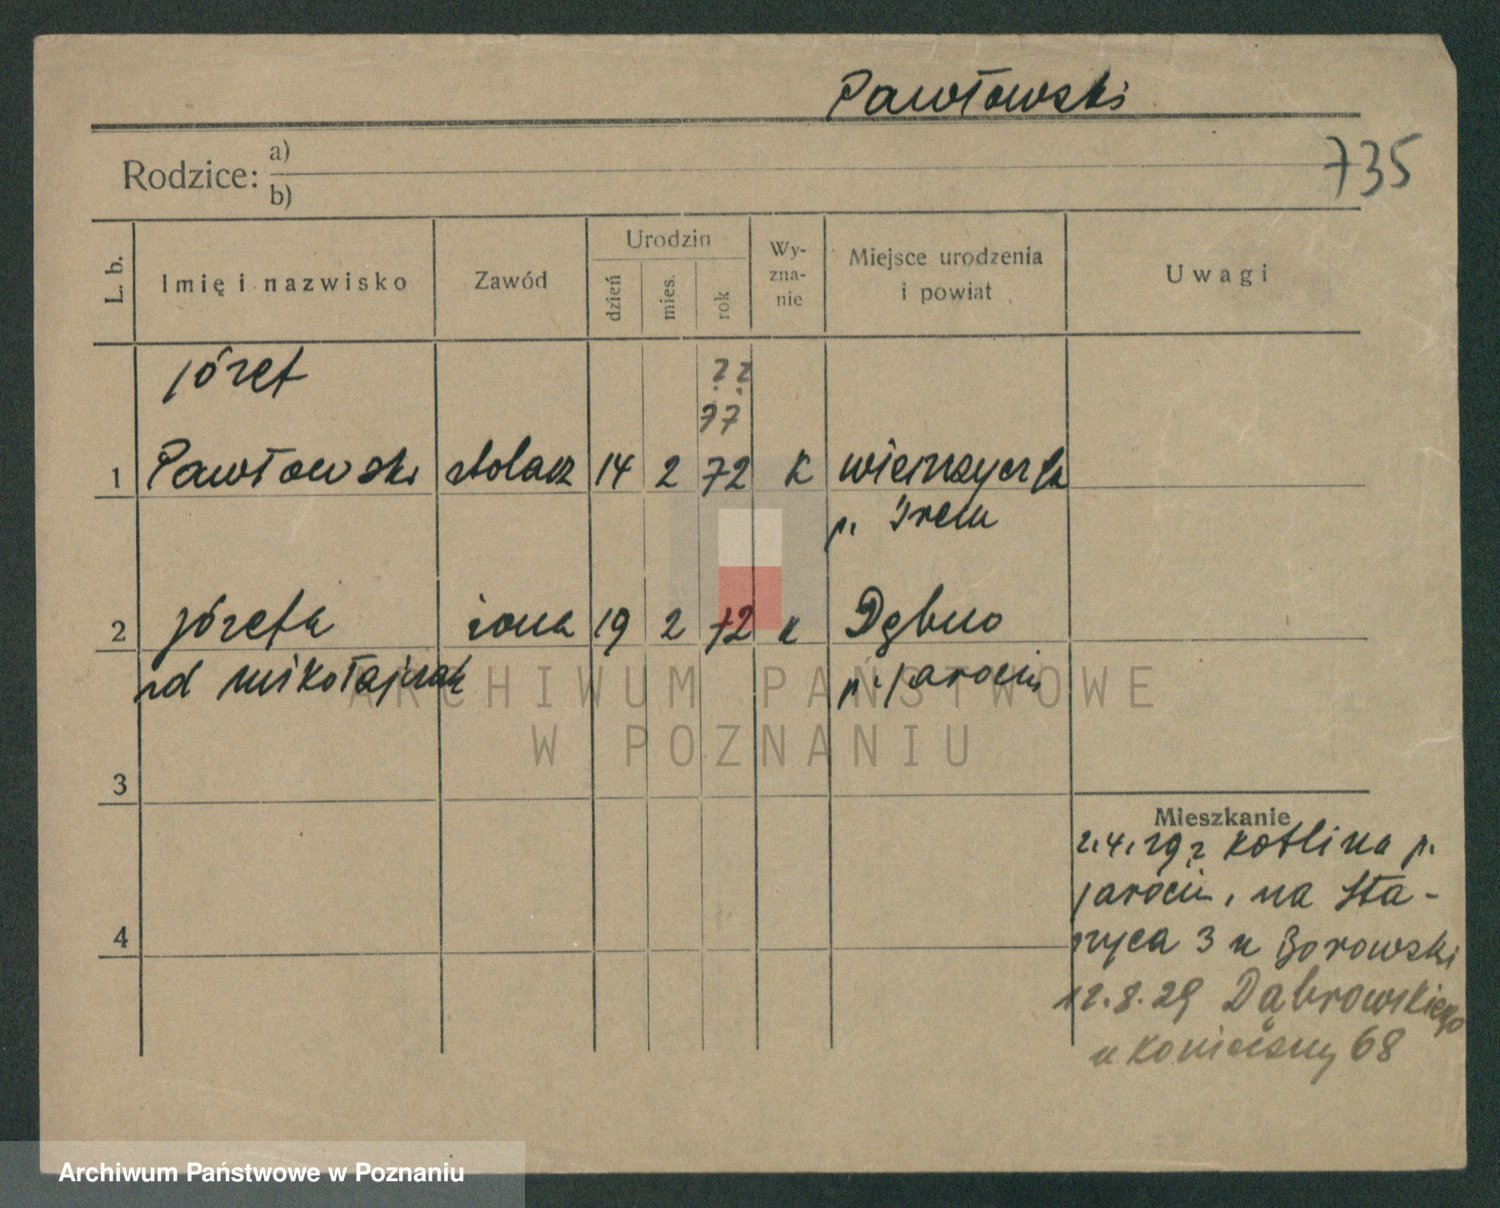 Pawłowski
735
Rodzice: a)
b)
L. b.
Imię i nazwisko
Zawód
Urodzin
dzień
mies.
rok
Wy-
zna-
nie
Miejsce urodzenia
i powiat
Uwagi
Józef
??
77
1 Pawłowski stolarz 14 2 72 K
p. Śrem
2 Józefa żona 19 2 72 K Dębno
zd Mikołajczak p. Jarocin
3
Mieszkanie
2.4.29 z Kotlina p.
Jarocin, na Sta-
szyca 3 u Borowski
4
12.8.29 Dąbrowskiego
u Konieczny 68
ARCHIWUM PAŃSTWOWE
W POZNANIU
Archiwum Państwowe w Poznaniu